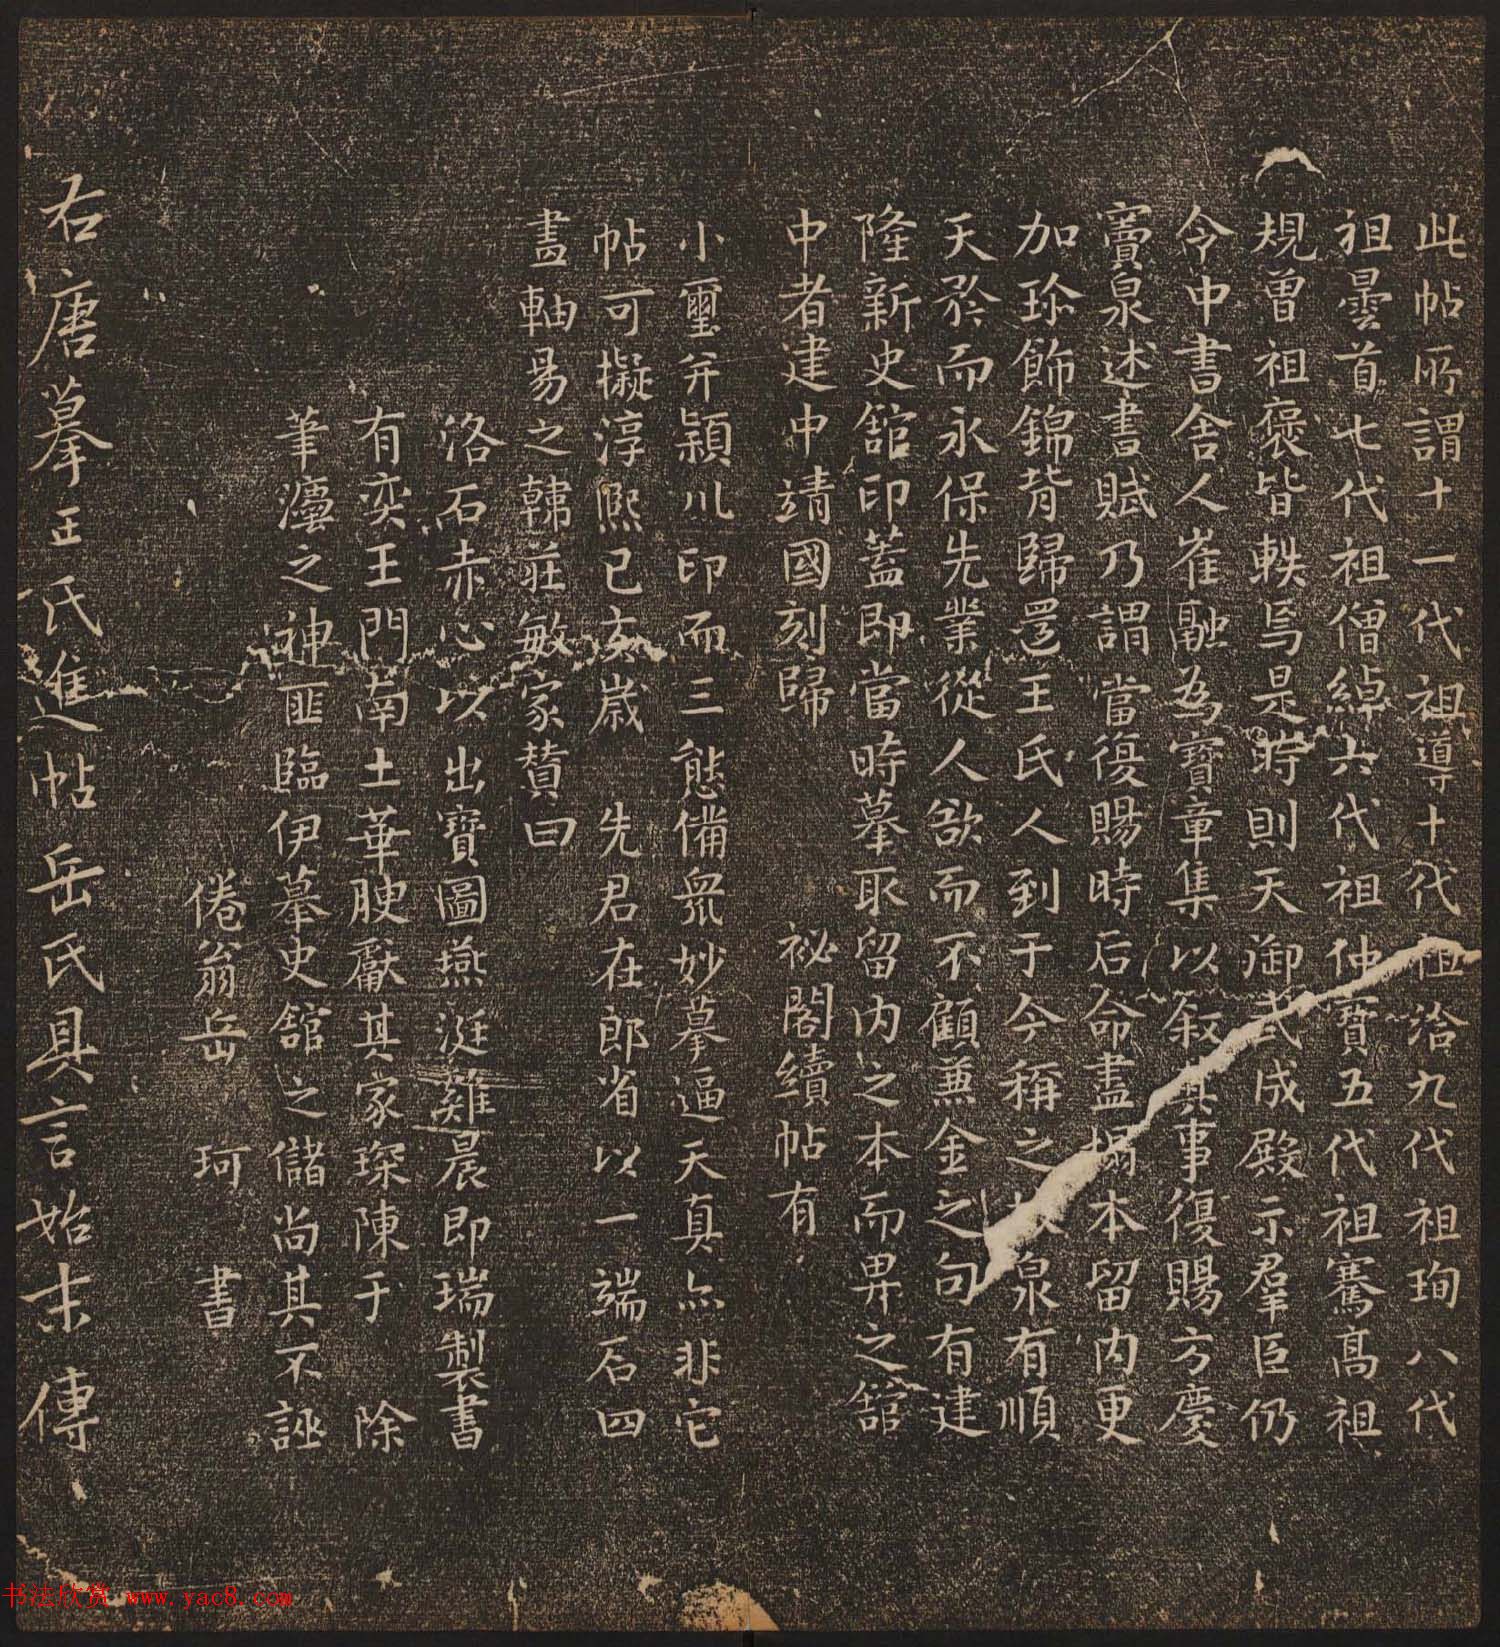 此帖所謂十一代祖導十代祖洽九代祖珣八代
祖曇首七代祖僧綽六代祖仲寶五代祖騫高祖
規曾祖褒皆軼焉是時則天御武成殿示羣臣仍
令中書舍人崔融為寶章集以叙其事復賜方慶
竇泉述書賦乃謂當復賜時后命盡搨本留內更
加珍飾錦背歸還王氏人到于今稱之泉有順
天矜而永保先業從人欲而不顧兼金之句有建
隆新史館印蓋即當時摹取留內之本而畀之館
中者建中靖國刻歸 祕閣續帖有
小璽并潁川印而三態備衆妙摹逼天真亦非它
帖可擬淳熙己亥歲 先君在郎省以一端石四
畫軸易之韓莊敏家贊曰
洛石赤心以出寶圖燕涎雞晨即瑞製書
有奕王門南土華腴獻其家琛陳于 除
筆灋之神匪臨伊摹史館之儲尚其不誣
倦翁岳 珂 書
右唐摹王氏進帖岳氏具言始末傳
书法欣赏 www.yac8.com